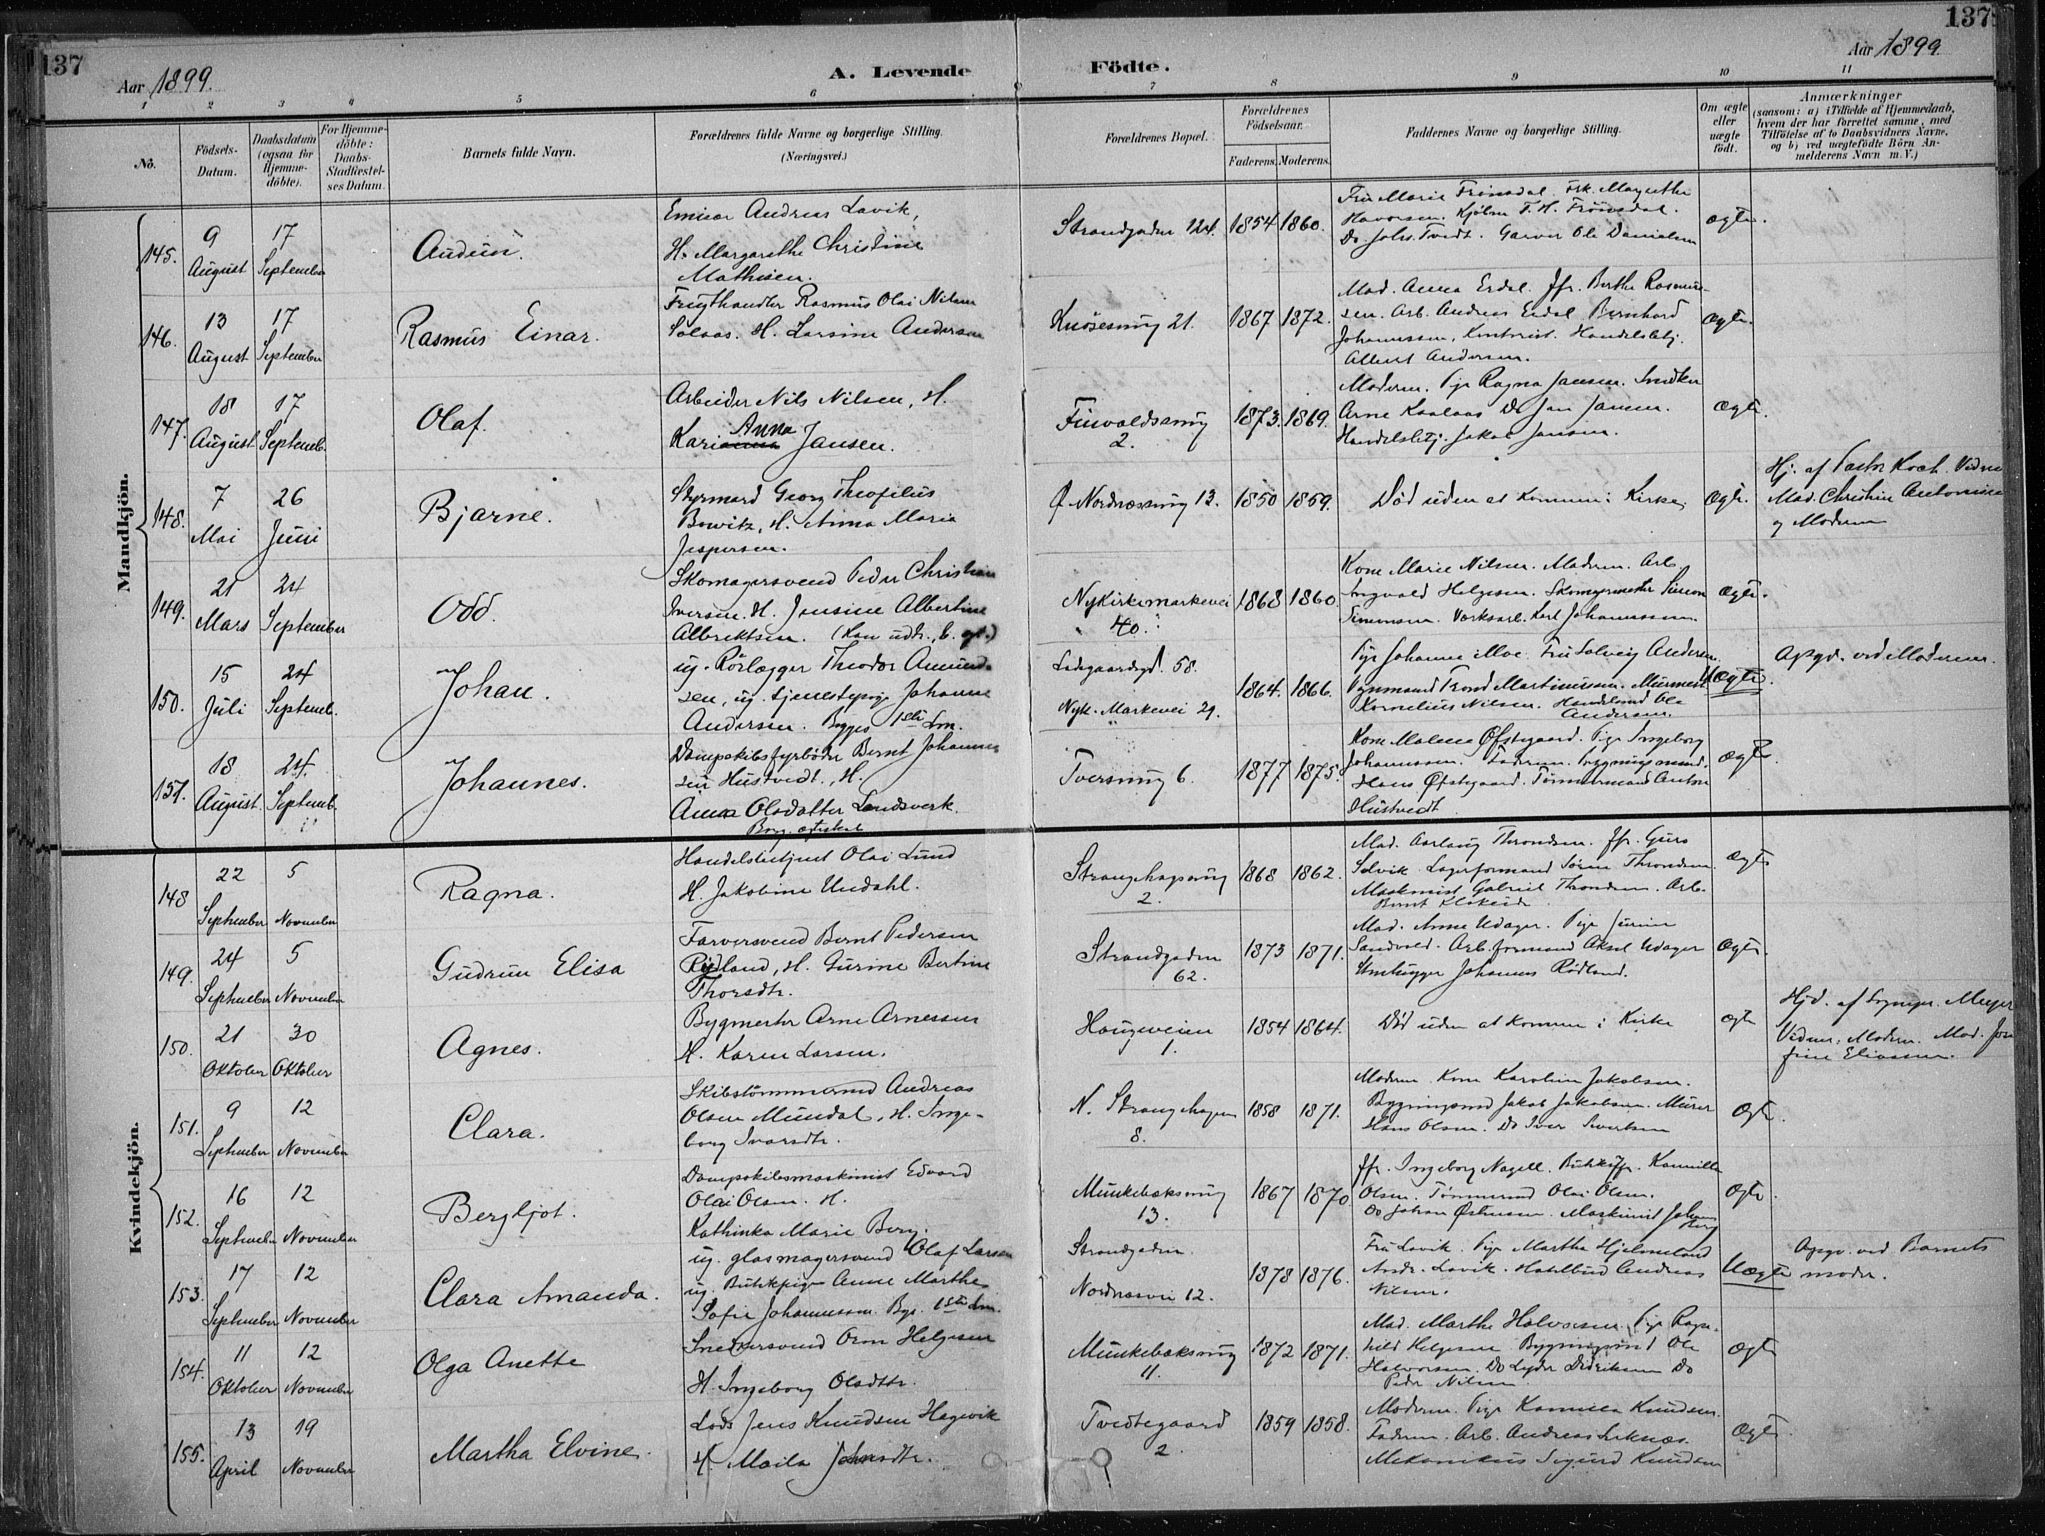 137
137
Aar 1899.
A. Levende
Födte.
Aar 1899
1 2 3 4 5 6 7 8 9 10 11
No.
Födsels-Datum.
Daabsdatum (ogsaa for Hjemmedöbte).
For Hjemmedöbte: Daabs-Stadfæstelses Datum.
Barnets fulde Navn.
Forældrenes fulde Navne og borgerlige Stilling.
(Næringsvei.)
Forældrenes Bopæl.
Forældrenes Födselsaar.
Faderens. Moderens.
Faddernes Navne og borgerlige Stilling.
Om ægte eller uægte födt.
Anmærkninger
(saasom: a) i Tilfælde af Hjemmedaab, hvem der har forrettet samme, med Tilföielse af to Daabsvidners Navne, og b) ved uægtefödte Börn Anmelderens Navn m. V.)
Mandkjön.
145. 9 August 17 September
Audun.
Emisær Andreas Lavik,
H. Margarethe Christine
Mathisen.
Strandgaden 124. 1854 1860.
Fru Marie Frönsdal. Frk. Margrethe
Havorsen. Kjøbm. T. H. Frönsdal.
Do Johs. Tvedt. Garver Ole Danielsen
ægte.
146. 13 August 17 September
Rasmus Einar.
Frugthandler Rasmus Olai Nilsen
Solaas. H. Larsine Andersen
Knösesmug 21. 1867 1872.
Mad. Anna Erdal. Jfr. Berthe Rasmus-
sen. Arb. Andreas Erdal Bernhard
Johannessen, Kontorist. Handelsbtj.
Albert Andersen.
Ægte.
147. 18 August 17 Septemb.
Olaf.
Arbeider Nils Nilsen, H.
Anna
Kari Jansen.
Finvaldssmug
2.
1873. 1869.
Moderen. Pige Ragna Jansen. Snedker
Arne Kaalaas Do Jan Jansen.
Handelsbtj. Jakob Jansen.
Ægte.
148. 7 Mai 26 Juni
Bjarne.
Styrmand Georg Theofilus
Bowitz, H. Anna Maria
Jespersen.
Ø Nordnæssmug 13. 1850 1859.
Død uden at komme i Kirke.
Ægte.
Hj. af Pastor Koch. Vidne
Mad. Christine Antonisen
og Moderen
149. 21 Mars 24 September
Odd.
Skomagersvend Peder Christian
Iversen. H. Jensine Albertine
Albrektsen.
Nykirkemarkevei
40.
1868 1860.
Kone Marie Nilsen. Moderen. Arb.
Ingvald Helgesen. Skomagermester Simon
Simonsen. Værksarb. Karl Johannessen.
Ægte.
150. 15 Juli 24 Septemb.
Johan.
ug. Rörlægger Theodor Amund-
sen, ug. tjenestepige Johanne
Andersen. Begges 1ste Lm.
Ladegaardsgd. 58.
Nyk. Markevei 29.
1864. 1866.
Pige Johanne Moe. Fru Solveig Andersen.
Bynmand Trond Martinussen. Murmest.
Kornelius Nilsen. Handelsmd Ole
Andersen.
Uægte.
Opgv. ved Moderen.
151. 18 August. 24. Septemb.
Johannes.
Dampskibsfyrbøder Bernt Johannes-
sen Hustvedt, H.
Anna Olsdatter Landsverk.
Tversmug 6. 1877 1875.
Kone Malene Øfstegaard. Pige Ingeborg
Johannessen. Faderen. Bygningsmand.
Hans Øfstegaard. Tømmermand Anton
Hustvedt
Ægte
Kvindekjön.
148 22 September 5 November
Ragna.
Handelsbetjent Olai Lund
H. Jakobine Undahl.
Strangehagsmug
2.
1868 1862.
Mad. Aarlaug Throndsen. Jfr. Guro
Solvik. Lagerformand Sören Throndsen
Maskinist Gabriel Throndsen. Arb.
Ægte
149. 24 September 5 November
Gudrun Elisa
Farversvend Bernt Pedersen
Rødland, H. Gurine Bertine
Thorsdtr.
Strandgaden
62.
1873 1871.
Mad. Anna Udager. Pige Jurine
Sandvold. Arb.formand Aksel Udager
Stenhugger Johannes Rødland.
Ægte.
150. 21 Oktober 30 Oktober
Agnes.
Bygmester Arne Arnessen
H. Karen Larsen.
Haugeveien
1.
1854 1864.
Død uden at komme i Kirke
Ægte
Hjd. af Sognepr. Meyer
Vidner, Moderen. Mad. Jo-
fine Eliassen.
151. 9 September 12 November
Clara.
Skibstömmermd Andreas
Olsen Mundal, H. Inge-
borg Ivarsdtr.
N. Strangehagen
8.
1858 1871.
Moderen. Kone Karoline Jakobsen.
Bygningsmd Jakob Jakobsen. Murer
Hans Olsen. Do Iver Sivertsen
Ægte.
152. 16 September 12 November
Bergljot.
Dampskibsmaskinist Edvard
Olai Olsen. H.
Kathinka Marie Berg.
Munkebæksmug
13.
1867 1870.
Jfr. Ingeborg Nagell. Butikjfr. Kamilla
Olsen. Tömmermd Olai Olsen.
Do Johan Østensen. Maskinist Johan
Berg
Ægte.
153. 17 September 12 November
Clara Amanda.
ug. glasmagersvend Olaf Larsen
ug. Butikpige Anne Marthe
Sofie Johannessen. Bges 1ste Lm.
Strandgaden.
Nordnesvei 12.
1878 1876.
Fru Lavik. Pige Martha Hjelmeland
Andr. Lavik. Hotelbud Andreas
Nilsen.
Uægte
Opgv. ved Barnets
moder.
154. 11 Oktober 12 November
Olga Anette
Snedkersvend Orm Helgesen
H. Ingeborg Olsdtr.
Munkebæksmug
11.
1872 1871.
Mad. Marthe Halvorsen. Pige Ragn-
hild Helgesen Bygningsmd Ole
Halvorsen. Do Lyder Didriksen Do
Peder Nilsen
Ægte
155. 13 April 19 November
Martha Elvine.
Lods Jens Knudsen Hagevik
H. Maila Johnsdtr.
Tvedtegaard
2.
1859 1858.
Moderen. Pige Kamilla Knudsen.
Faderen. Arb. Andreas Leknæs.
Mekanikus Sigurd Knudsen
Ægte.